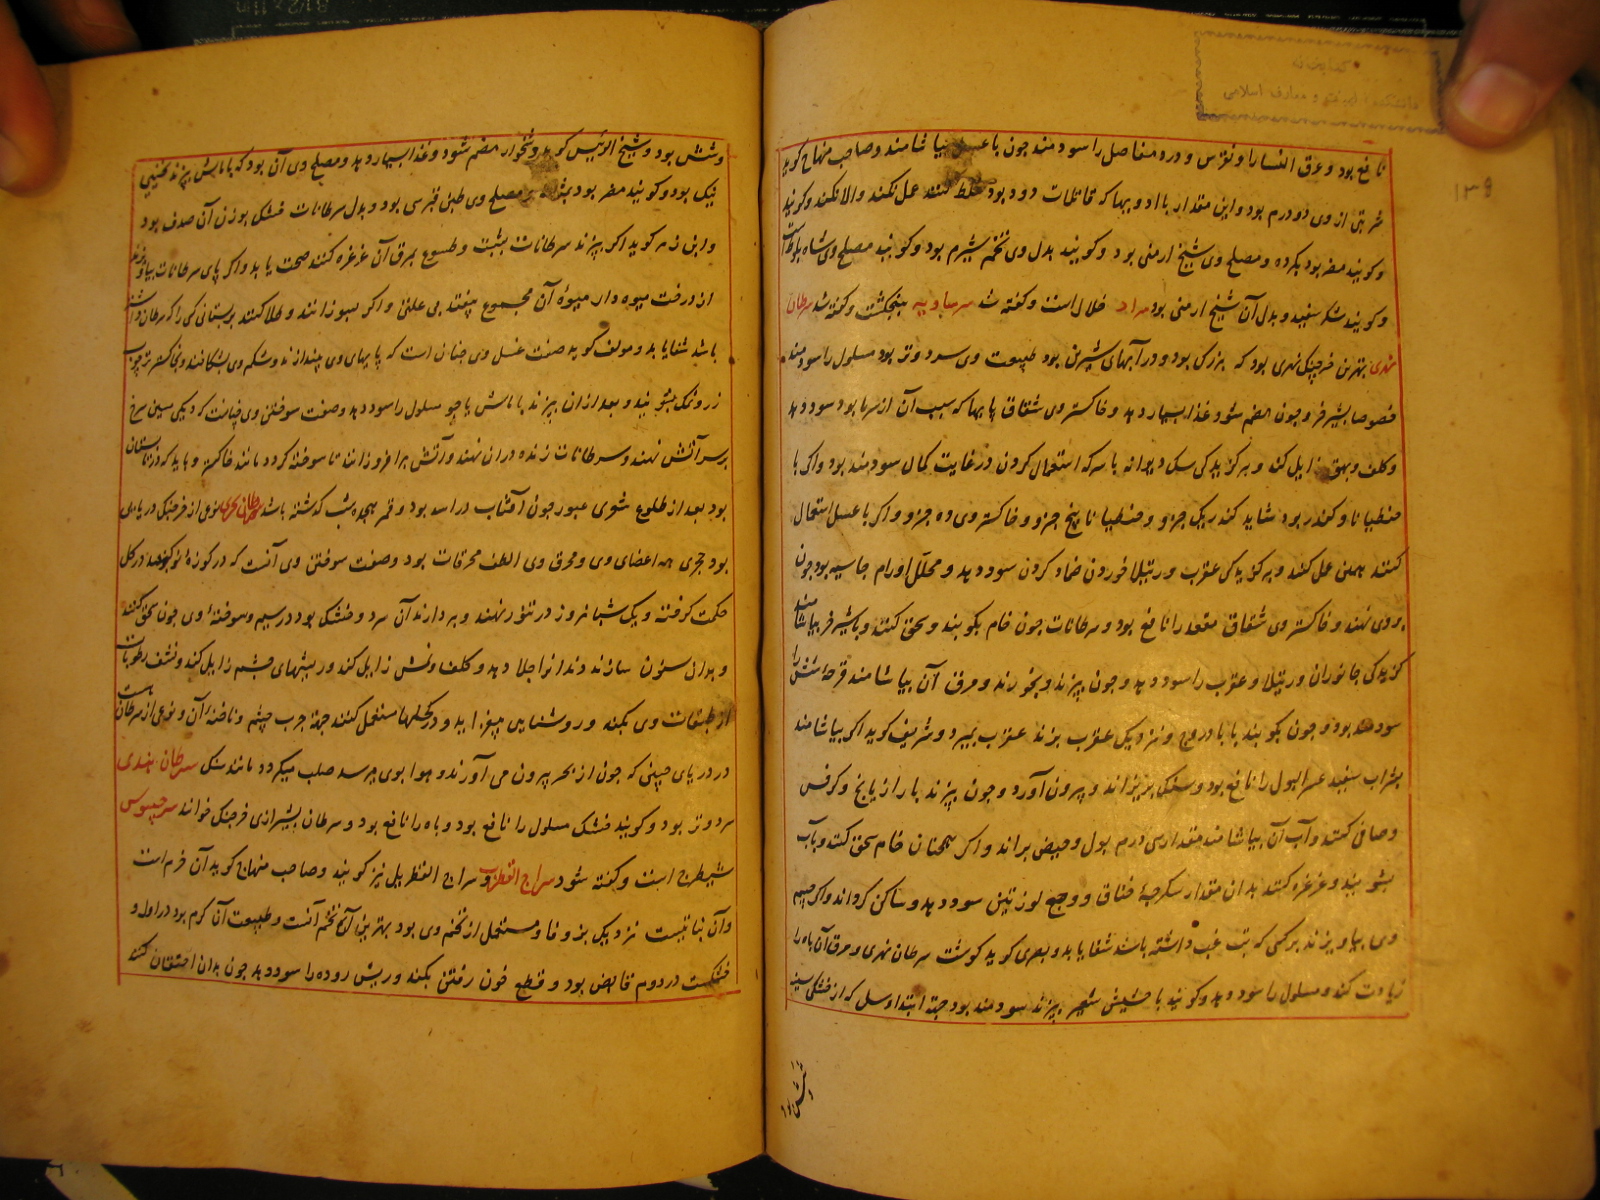 نافع بود و عرق النسا را و نقرس و درد مفاصل را سودمند چون با عسل بیاشامند و صاحب منهاج کوید
شربتی از وی دو درم بود و این مقدار با ادویها که قاتلات دود بود خلط کنند عمل نکند والا نکند و کویند
و کویند مضر بود بکرده و مصلح وی شیخ ارمنی بود و کویند بدل وی تخم شبرم بود و کویند مصلح وی شاه بلوط است
و کویند شکر سفید و بدل آن شیخ ارمنی بود سراد خلال است و کفته شد سرساد بنجکشت و کفته شد سرطان
نهری بهترین خرچنک نهری بود که بزرک بود و در آبهای شیرین بود طبیعت وی سرد و تر بود مسلول را سودمند
خصوصا بشیر خر و چون هضم شود غذا بسیار دهد و خاکستر وی شقاق پایها که سبب آن از سرما بود سود دهد
و کلف و بهق زایل کند و بر کزیدکی سک دیوانه با سرکه استعمال کردن در غایت کمال سودمند بود واکر با
جنطیانا و کندر بود شاید کندر یک جزو و جنطیانا پنج جزو و خاکستر وی ده جزو و اکر با عسل استعمال
کنند همین عمل کند و بر کزیدکی عقرب و رتیلا خوردن ضماد کردن سود دهد و محلل اورام جاسیه بود چون
بروی نهند و خاکستر وی شقاق مقعد را نافع بود و سرطانات چون خام بکوبند و سحق کنند و با شیر خر بیاشامند
کزیدکی جانوران و رتیلا و عقرب را سود دهد و چون بپزند و بخورند و مرق آن بیاشامند قرحه شش را
سودمند بود و چون بکوبند با بادروج و نزدیک عقرب برند عقرب بمیرد و شریف کوید اکر بیاشامند
بشراب سفید عسر البول را نافع بود و سنک بریزاند و بیرون آورد و چون بپزند با رازیانج و کرفس
و صافی کنند و آب آن بیاشامند مقدار سی درم بول و حیض براند و اکر همچنان خام سحق کنند و بآب
بشویند و غرغره کنند بدان مقدار سکرجهٔ خناق و وجع لوزتین سود دهد و ساکن کرداند و اکر چشم
وی بیاویزند بر کسی که تب غب داشته باشد شفا یابد و بصری کوید کوشت سرطان نهری و مرق آن باه را
زیادت کند و مسلول را سود دهد و کویند با حشیش شعیر بپزند سودمند بود جهة ابتداء سل که از خشکی سینه
و شش بود و شیخ الرئیس کوید دشخوار هضم شود و غذا بسیار دهد و مصلح وی آن بود که با ماش بپزند تخشیی
نیک بود و کویند مضر بود بمثانه و مصلح وی طین قبرسی بود و بدل سرطانات خشک بوزن آن صدف بود
و ابن زهر کوید اکر بپزند سرطانات بشبت و طبوع بمرق آن غرغره کنند صحت یابد و اکر پای سرطانات بیاویزند
از درخت میوه دار میوهٔ آن مجموع بیفتد بی علتی و اکر بسوزانند و طلا کنند بر پستانی کسی را که سرطان داشته
باشد شفا یابد و مولف کوید صنعت غسل وی چنان است که پایهای وی بیندازند و شکم وی بشکافند و بخاکستر چوب
زر و نمک بشویند و بعد از ان بپزند با ماش یا جو مسلول را سود دهد و صنعت سوختن وی چنانست که دیکی مسین سرخ
بر سر آتش نهند و سرطانات زنده در ان نهند و آتش برافروزانند تا سوخته کردد مانند خاکستر و باید که در تابستان
بود بعد از طلوع شعری عبور چون آفتاب در اسد بود و قمر هجده شب کذشته باشد سرطان بحری نوعی از خرچنک دریایی
بود حجری همه اعضای وی و محرق وی الطف محرقات بود و صنعت سوختن وی آنست که در کوزهٔ نو کنند در کل
حکمت کرفته و یک شبانروز در تنور نهند و بردارند آن سرد و خشک بود در سیم و سوختهٔ وی چون سحق کنند
و بدان سنون سازند دندانرا جلا دهد و کلف و نمش زایل کند و ریشهای چشم زایل کند و نشف رطوبات
از طبقات وی بکند و روشنایی بیفزاید و در کحلها مستعمل کنند جهة جرب چشم و ناخنهٔ آن و نوعی از سرطان هست
در دریای چین که چون از بحر بیرون می آورند و هوا بوی میرسد صلب میکردد مانند سنک سرطان هندی
سرد و تر بود و کویند خشک مسلول را نافع بود و باه را نافع بود و سرطان بشیرازی خرچنک خوانند سرجیوس
شیطرج است و کفته شود سراج القطرب و سراج القطربل نیز کویند و صاحب منهاج کوید آن خرم است
وآن نباتیست نزدیک بزوفا و مستعمل از تخم وی بود بهترین آن تخم آنست و طبیعت آن کرم بود در اول و
خشکست در دوم قابض بود و قطع خون رفتن بکند و ریش روده را سود دهد چون بدان احتقان کنند
و شش بود
۱۳۹
دانشکده الهیات و معارف اسلامی